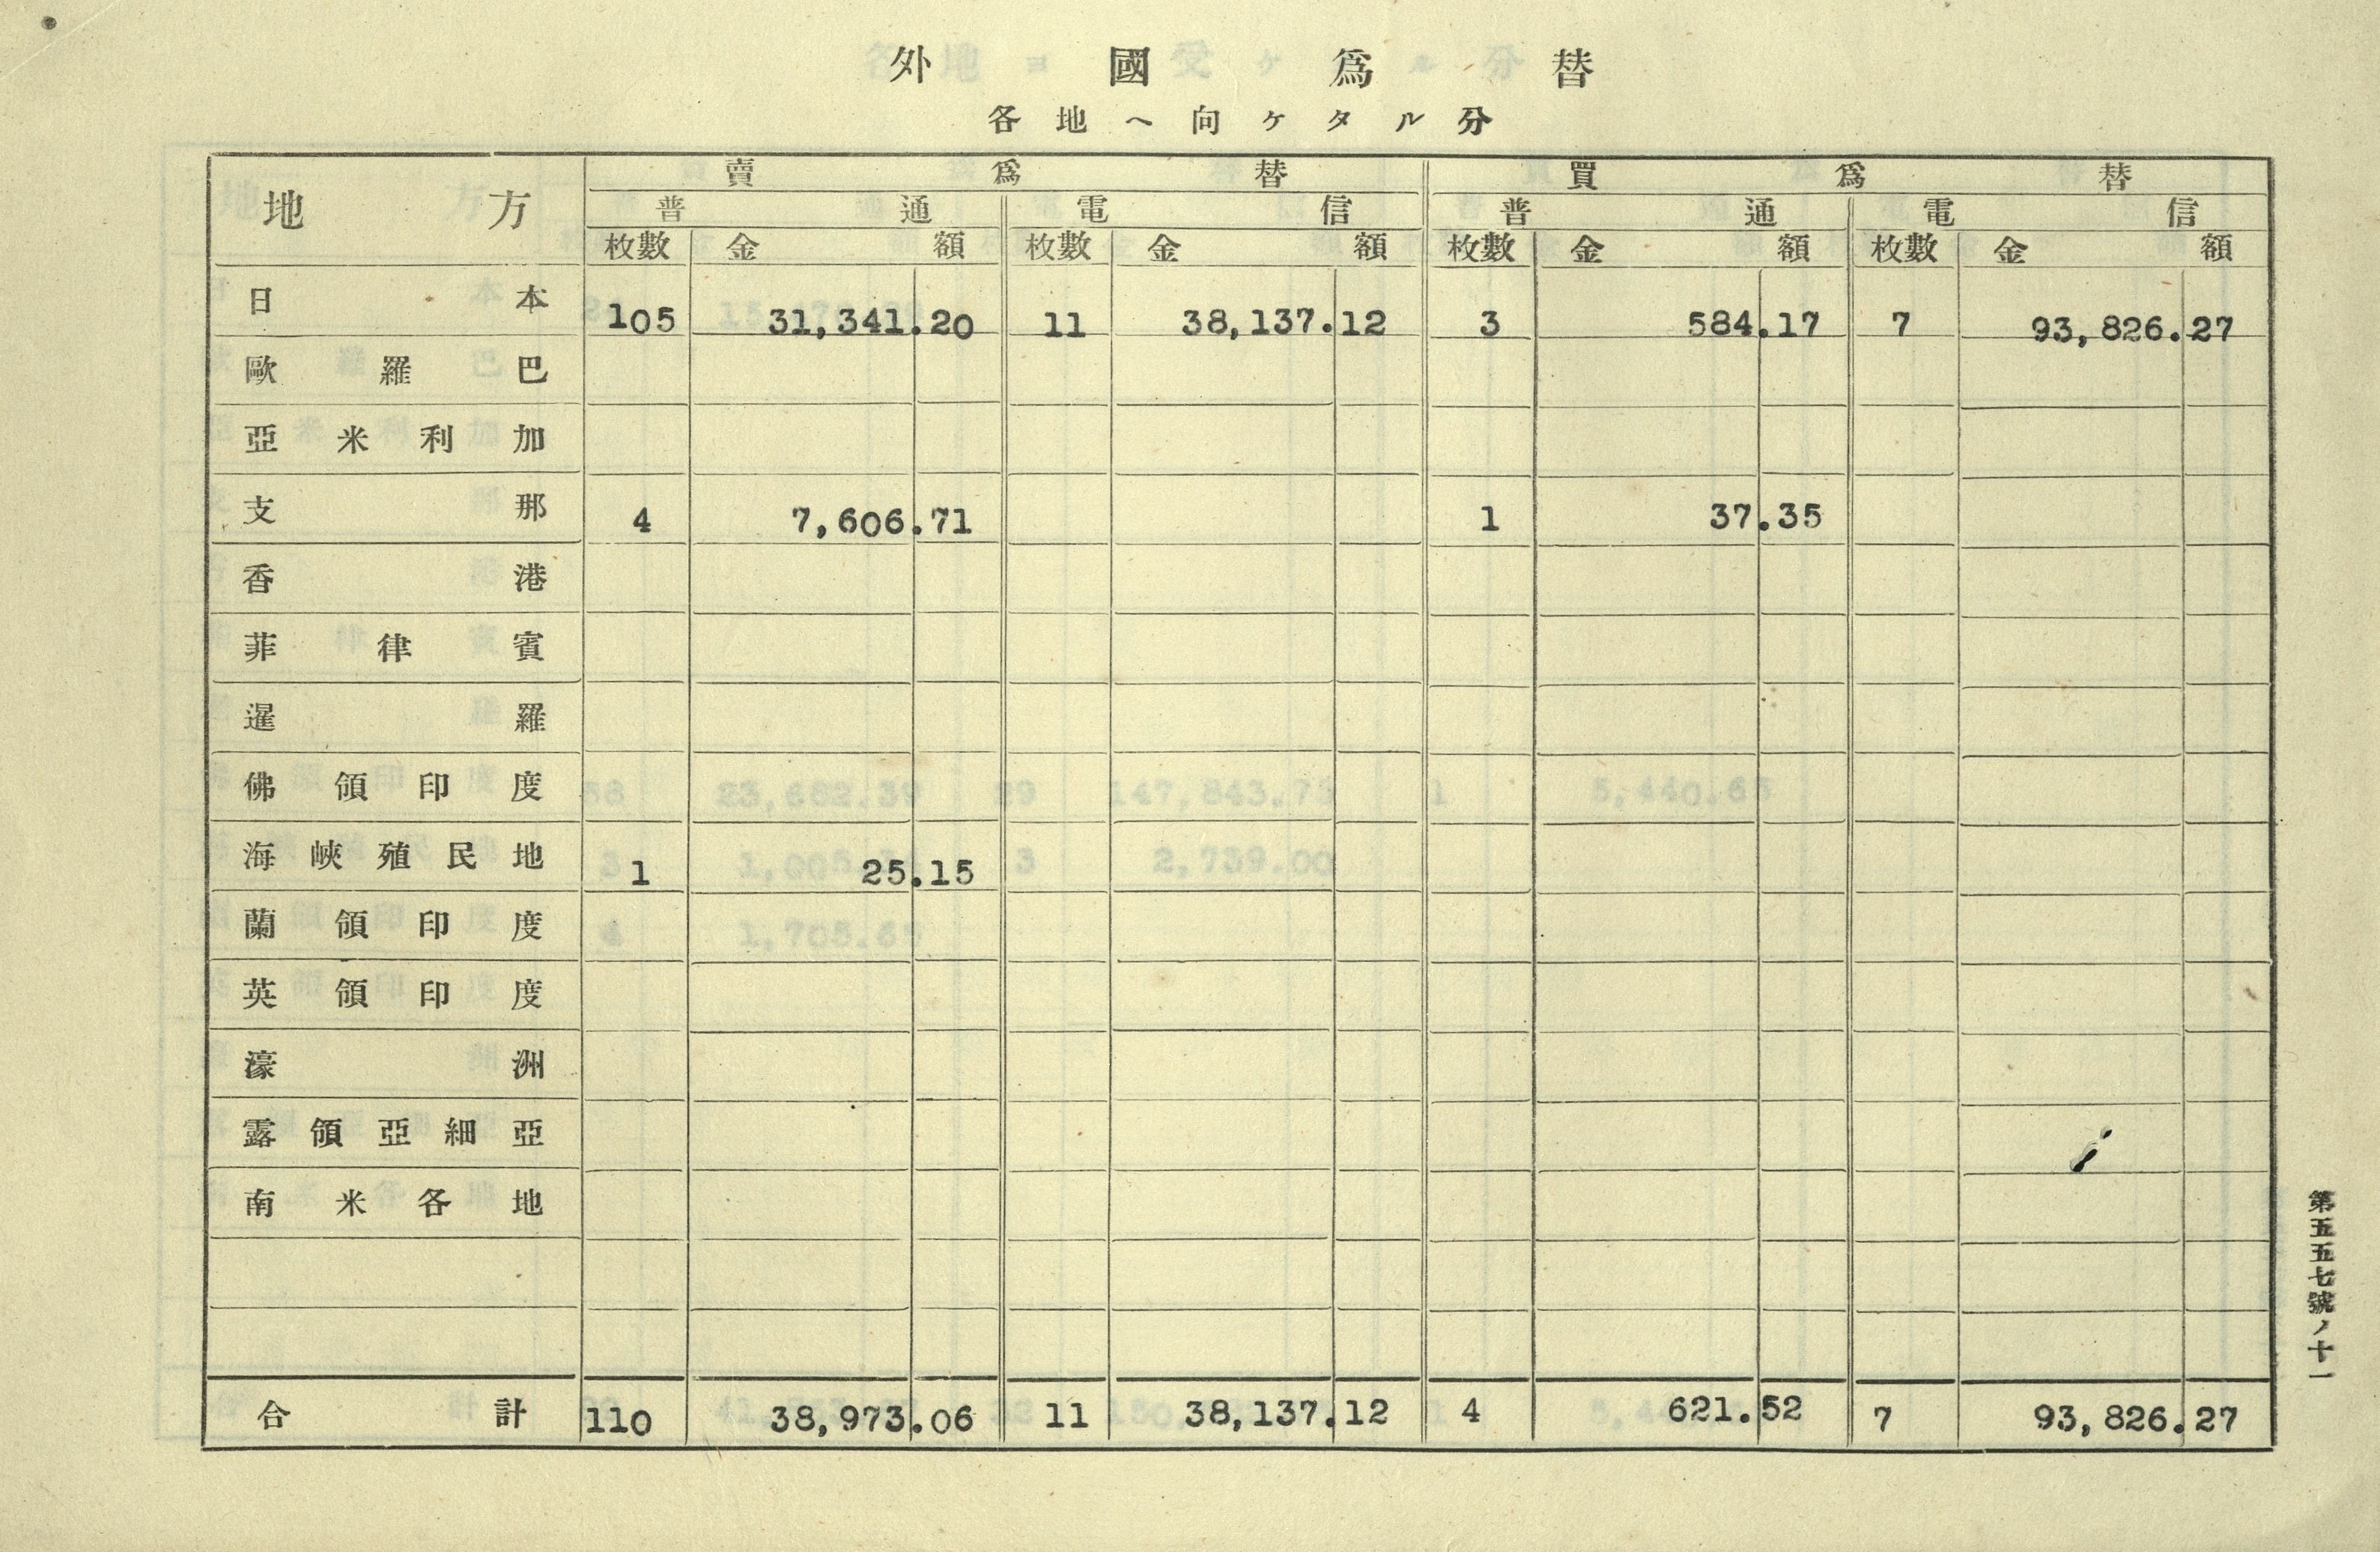 外國爲替
各地ヘ向ケタル分
地方 賣爲替 買爲替
普通 電信 普通 電信
枚數 金額 枚數 金額 枚數 金額 枚數 金額
日本 105 31,341.20 11 38,137.12 3 584.17 7 93,826.27
歐羅巴
亞米利加
支那 4 7,606.71 1 37.35
香港
菲律賓
暹羅
佛領印度
海峽殖民地 1 25.15
蘭領印度
英領印度
濠洲
露領亞細亞
南米各地
合計 110 38,973.06 11 38,137.12 4 621.52 7 93,826.27
第五五七號ノ十一